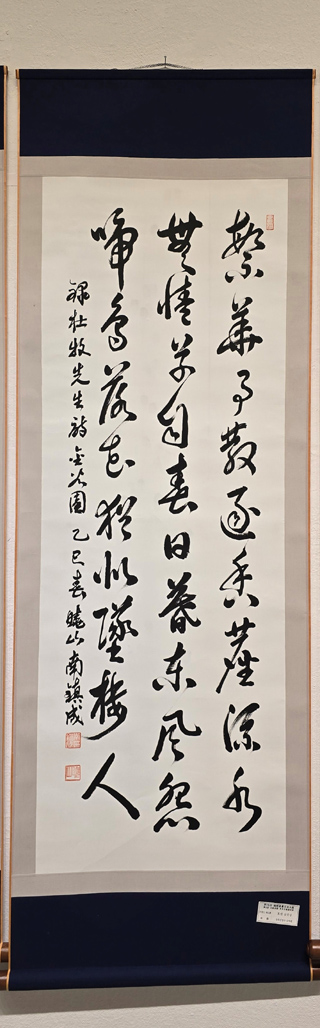 繁華事散逐香塵流水
無情草自春日暮東風怨
啼鳥落花猶似墜樓人
錄杜牧先生詩金谷園 乙巳春 曉山 南鎮成